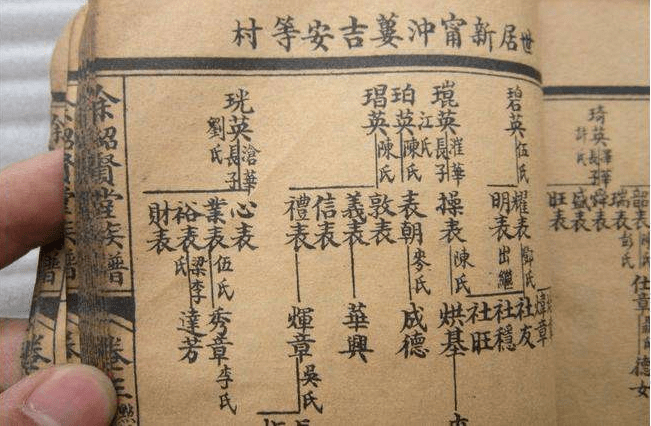 世居新甯沖蔞吉安等村
碧英 伍氏
琨英 淮華長子 江氏
珀英 陳氏
琩英 陳氏
珖英 滄華長子 劉氏
耀表 鄧氏
明表 出繼
操表 陳氏
表朝 麥氏
敦表
義表
信表
禮表
心表
業表 伍氏
裕表 梁李氏
財表
社友
社穩
社旺
烘基
成德
華興
煇章 吳氏
秀章 李氏
達芳
余紹賢堂族譜
卷三
琦英 長子 許氏
韶表 陳氏
瑞表 彭氏
舜表
盛表
旺表
煒章
仕章
德女